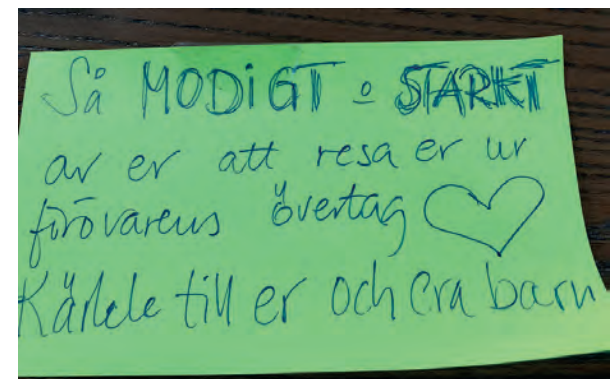 Så MODIGT o STARKT
av er att resa er ur
förövarens övertag
Kärlek till er och era barn